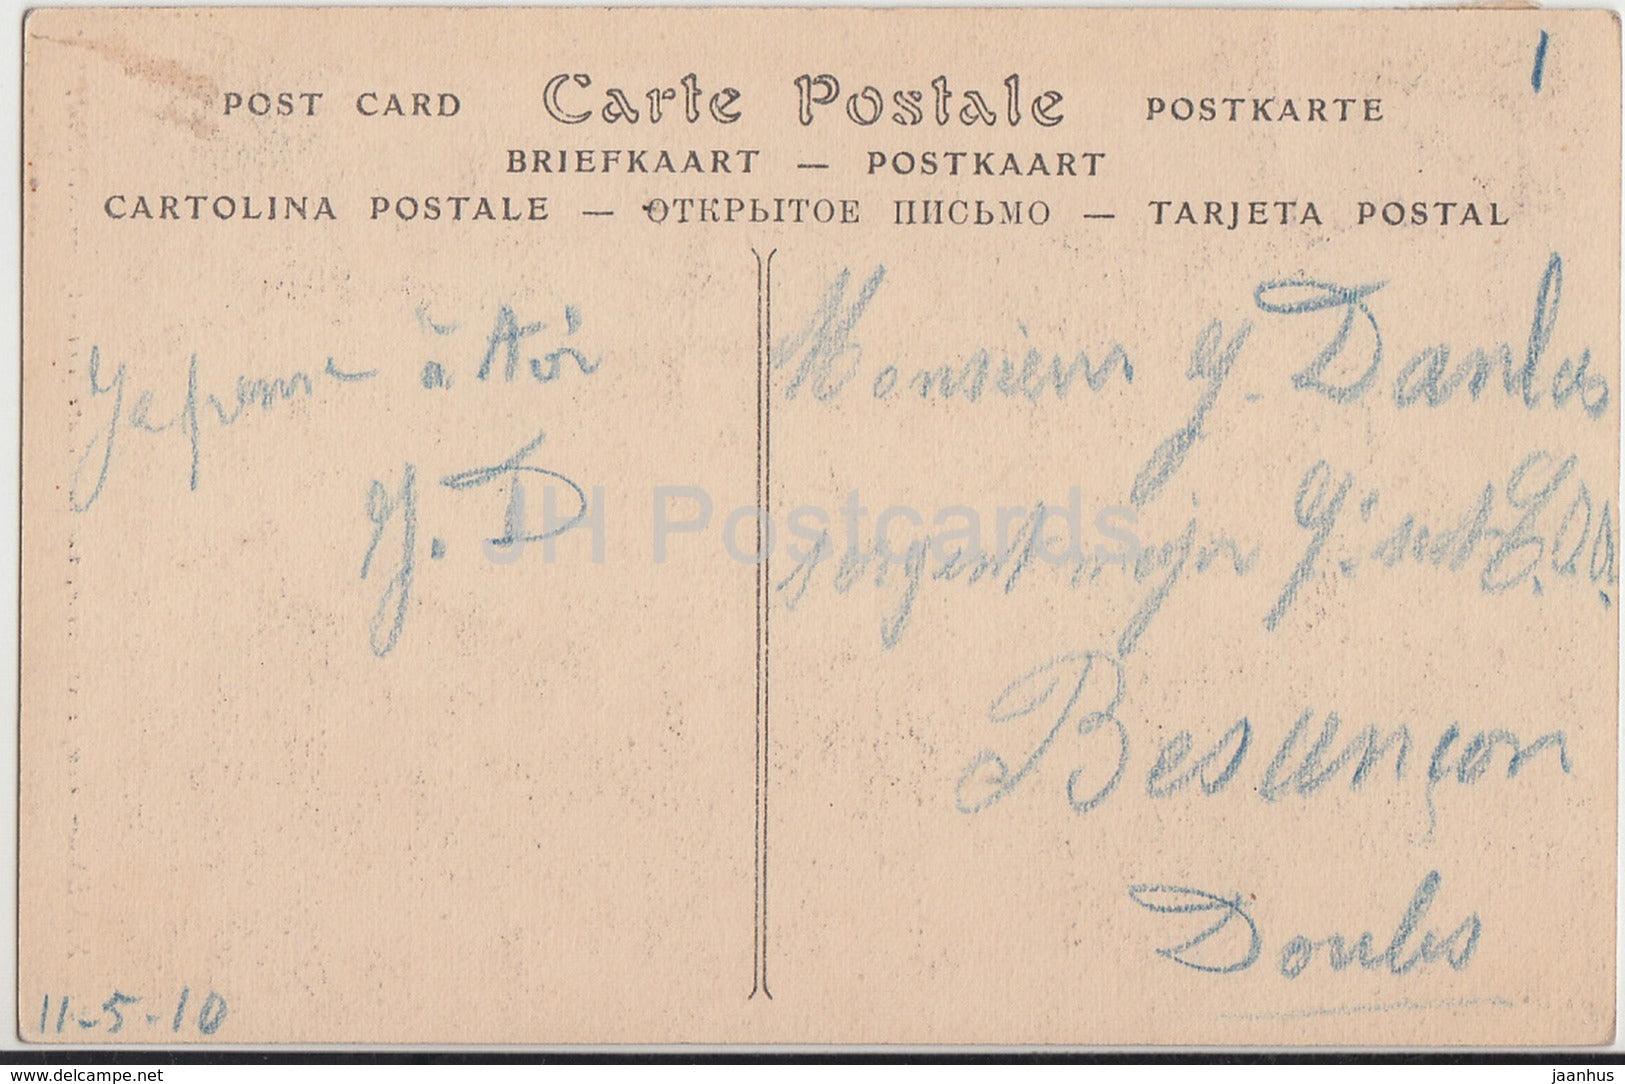 POST CARD Carte Postale POSTKARTE
BRIEFKAART — POSTKAART
CARTOLINA POSTALE — ОТКРЫТОЕ ПИСЬМО — TARJETA POSTAL
1
à
G. D
11-5-10
Monsieur G. Danlos
sergent major
Besançon
Doubs
JH Postcards
www.delcampe.net
jaanhus